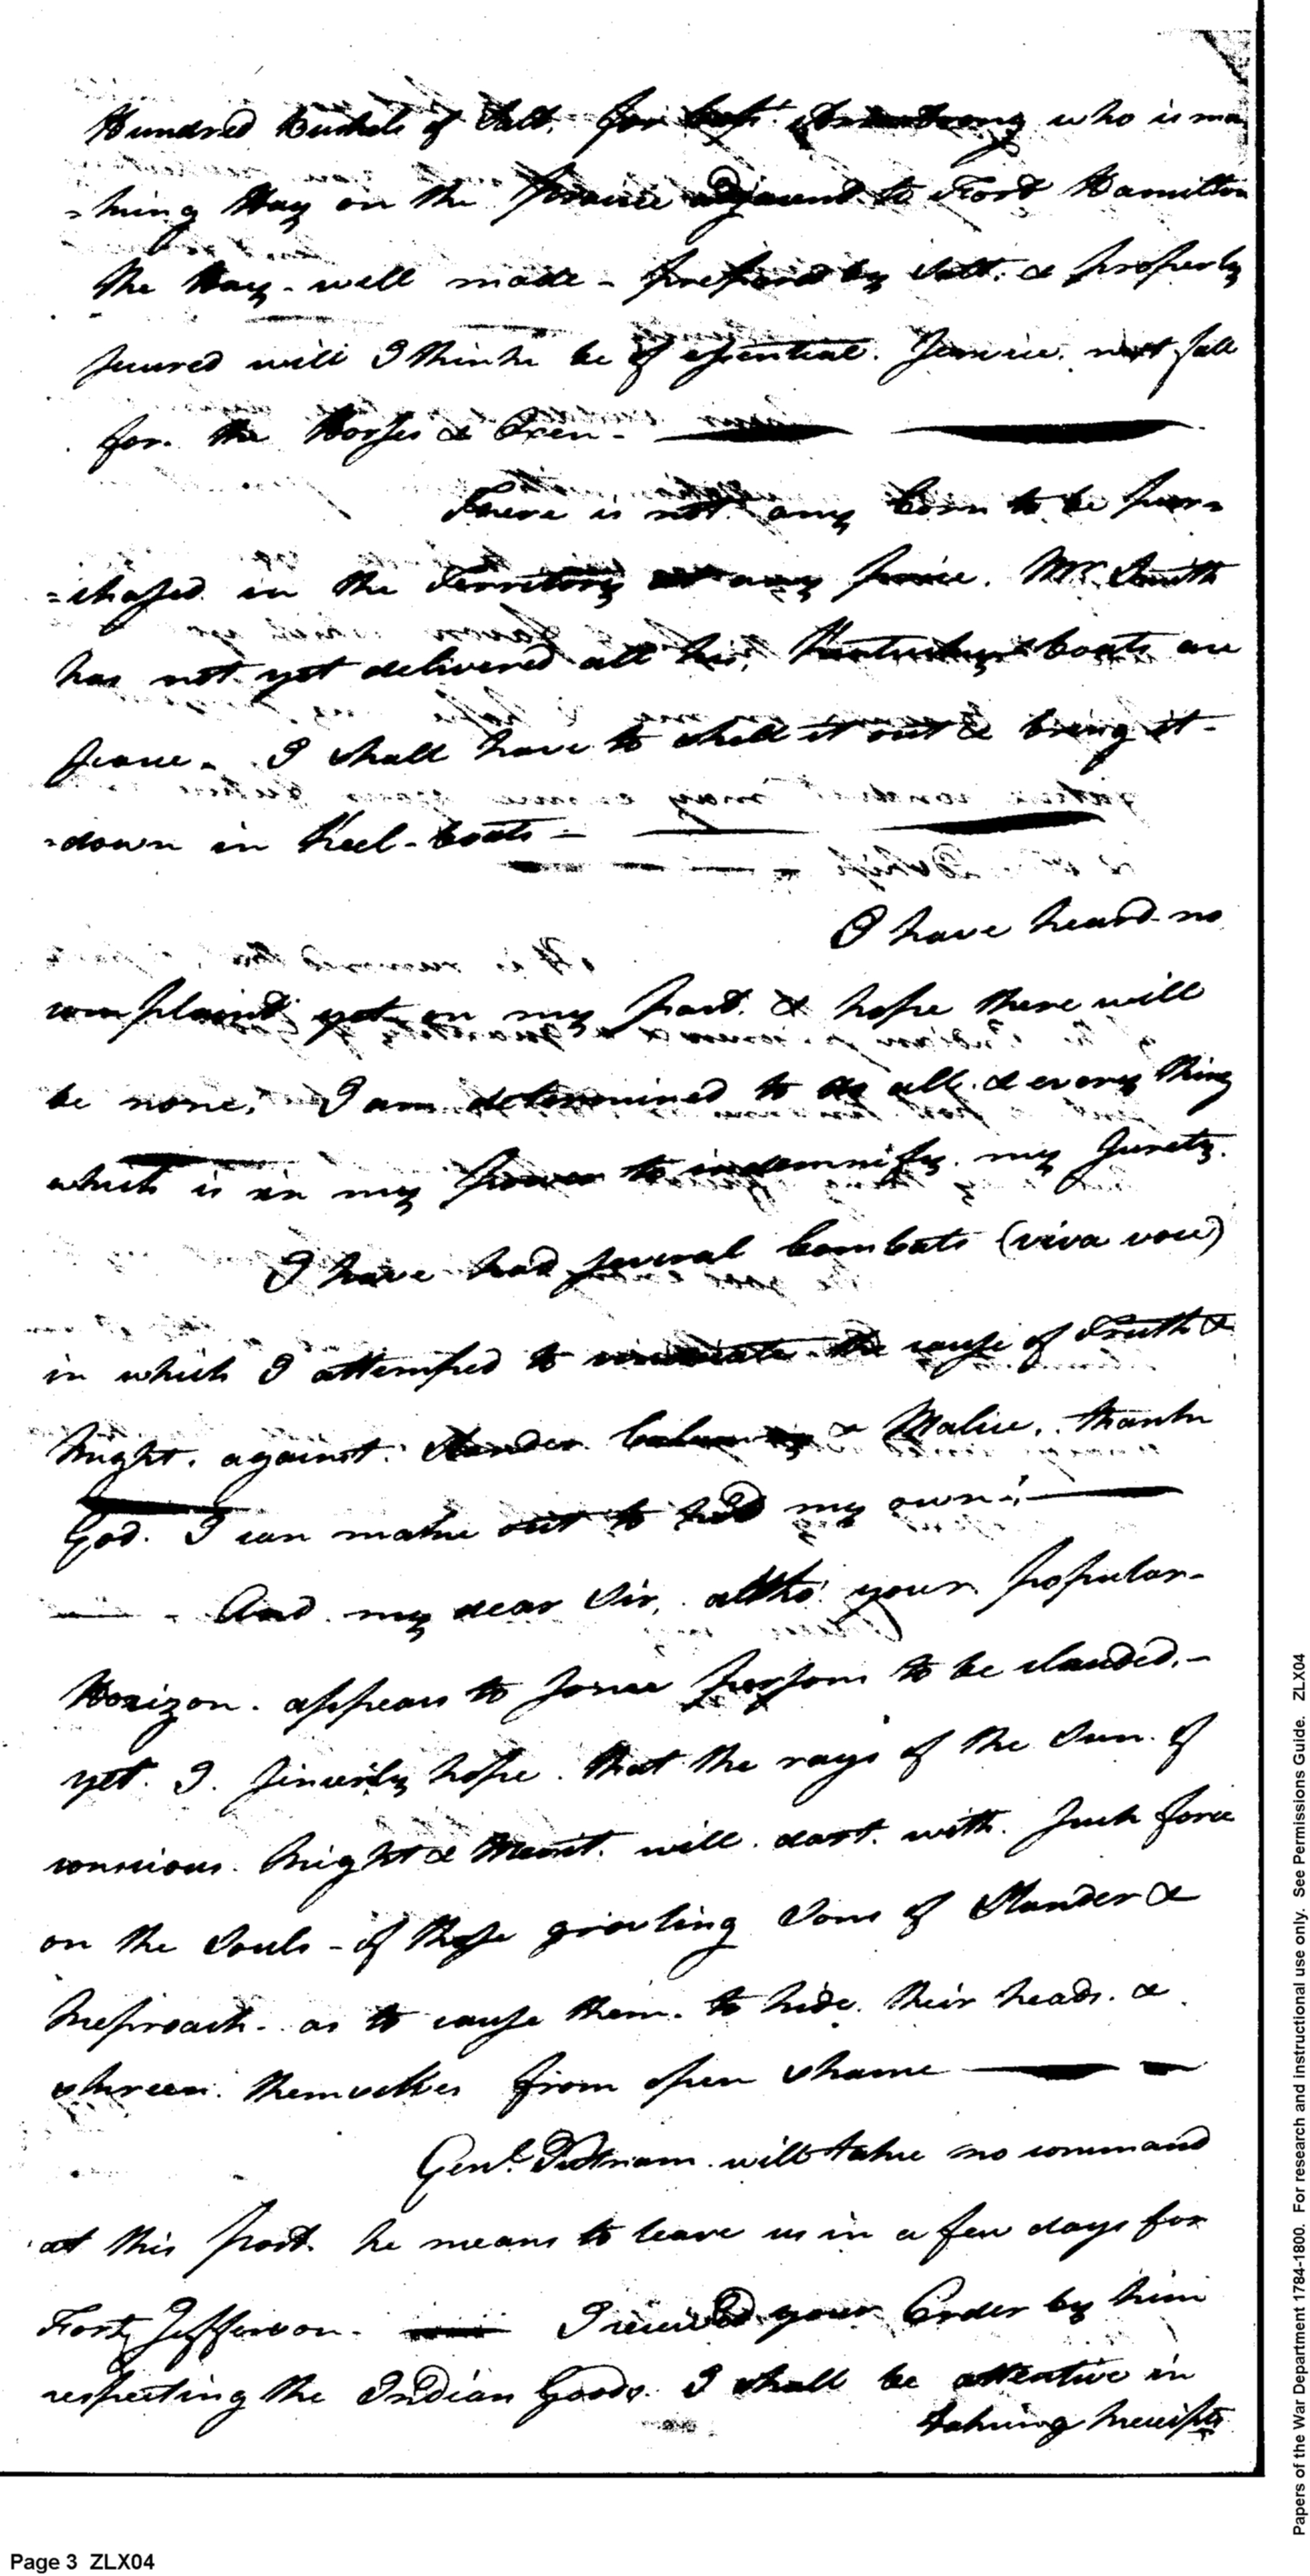 Hundred Bushels of Salt. for Capt. Armstrong who is ma
=king Hay on the Prairie adjacent to Fort Hamilton
the Hay - well made - prepared by Salt. & properly
secured will I think be of essential. Service. next fall
for. the Horses & Oxen -
There is not any Corn to be pur=
=chased in the Territory at any price. Mr. Smith
has not yet delivered all his, Kentucky boats are
scarce. I shall have to shell it out & bring it -
=down in Keel-boats -
I have heard no
complaint yet on my part. & hope there will
be none. I am determined to do all & every thing
which is in my power to indemnify my Surety.
I have had several Combats (viva voce)
in which I attempted to vindicate the cause of Truth &
Right. against. Slander Calumny & Malice. thank
God. I can make out to hold my own.
And my dear Sir, altho' your popular-
Horizon. appears to some persons to be clouded. -
yet. I. sincerely hope. that the rays of the Sun. of
conscious. Right & Merit. will. dart. with. such force
on the Souls - of those groveling Sons of Slander &
Reproach. as to cause them. to hide. their heads. &
skreen. themselves from open shame
Genl. Putnam. will take no command
at this post. he means to leave us in a few days for
Fort Jefferson. I received your Order by him
respecting the Indian Goods. I shall be attentive in
taking Receipts
Page 3 ZLX04
Papers of the War Department 1784-1800. For research and instructional use only. See Permissions Guide. ZLX04